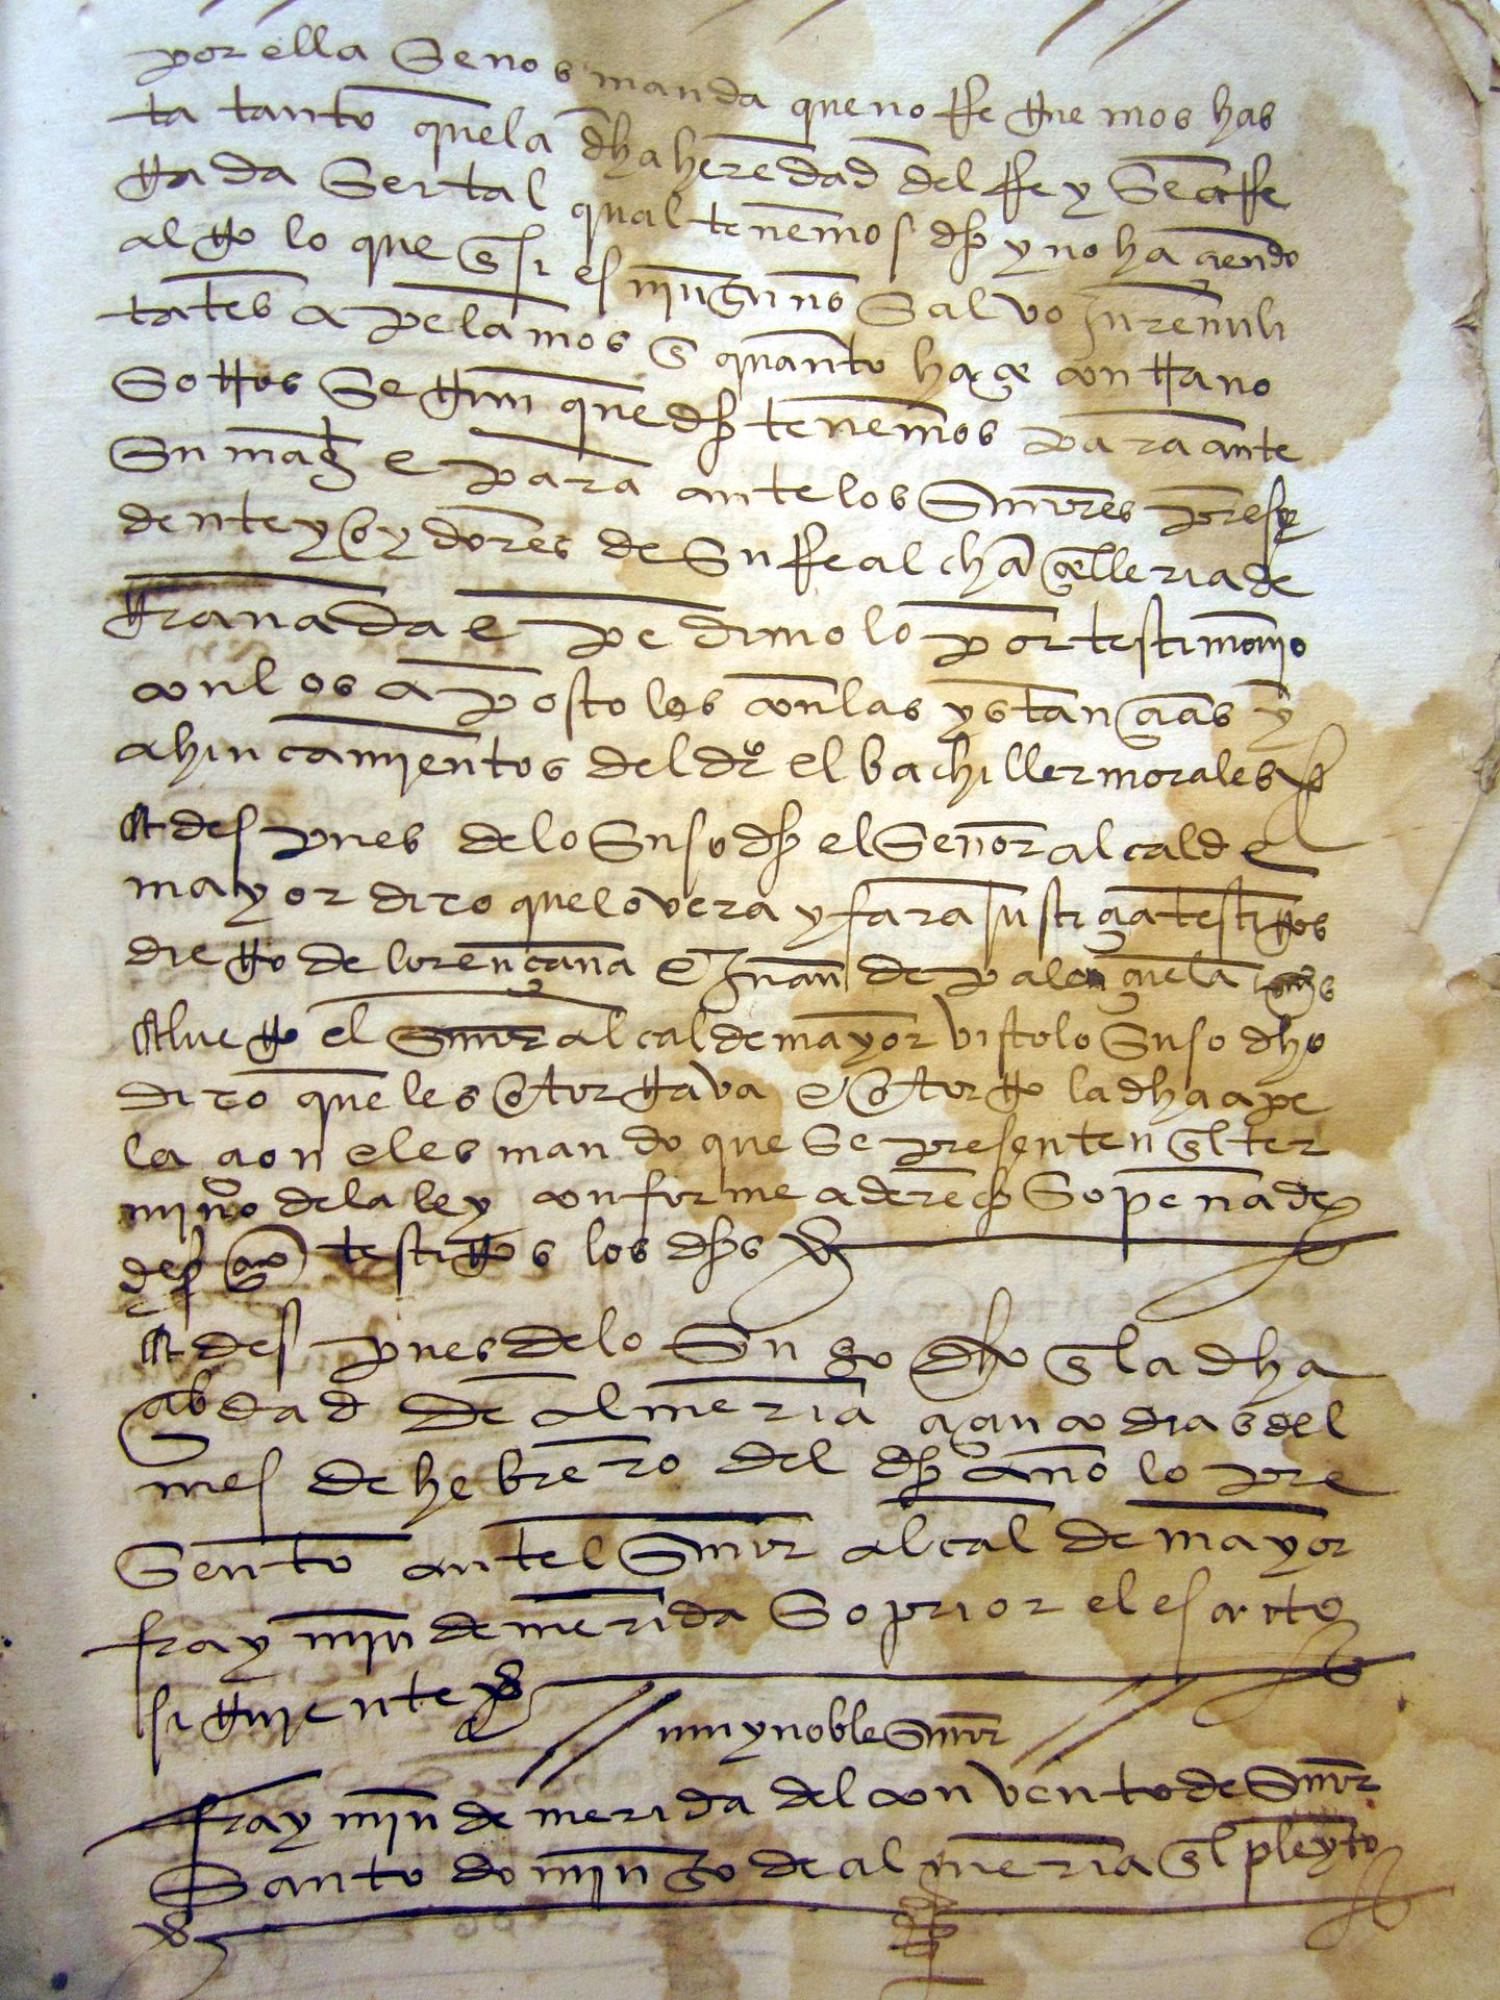 por ella se nos manda que no rreguemos has
ta tanto que la dha heredad del rrey se arre
gada ser tal qual tenemos dho y no haziendo
algo lo que en si es ninguno salvo jure nuli
tates apelamos en quanto haze contra no
sotros segun que dho tenemos para ante
su magd e para ante los señores presy
dente y oydores de su rreal chancelleria de
granada e pedimoslo por testimonio
con los apostolos con las ystancias y
ahincamientos del dro el bachiller morales
E despues de lo suso dho el señor alcalde
mayor dixo que lo vera y fara justicia testigos
diego de lorençana e Juan de palençuela
E luego el señor alcalde mayor visto lo suso dho
dixo que les otorgava e otorgo la dha ape
lacion e les mando que se presenten en el ter
mino de la ley conforme a derecho so pena de
desercion testigos los dhos
E despues de lo suso dho en la dha
cibdad de almeria a cinco dias del
mes de hebrero del dho año lo pre
sento antel señor alcalde mayor
fray min de merida soprior el escrito
siguiente
muy noble señor
fray min de merida del convento de señor
Santo domingo de almeria en el pleyto